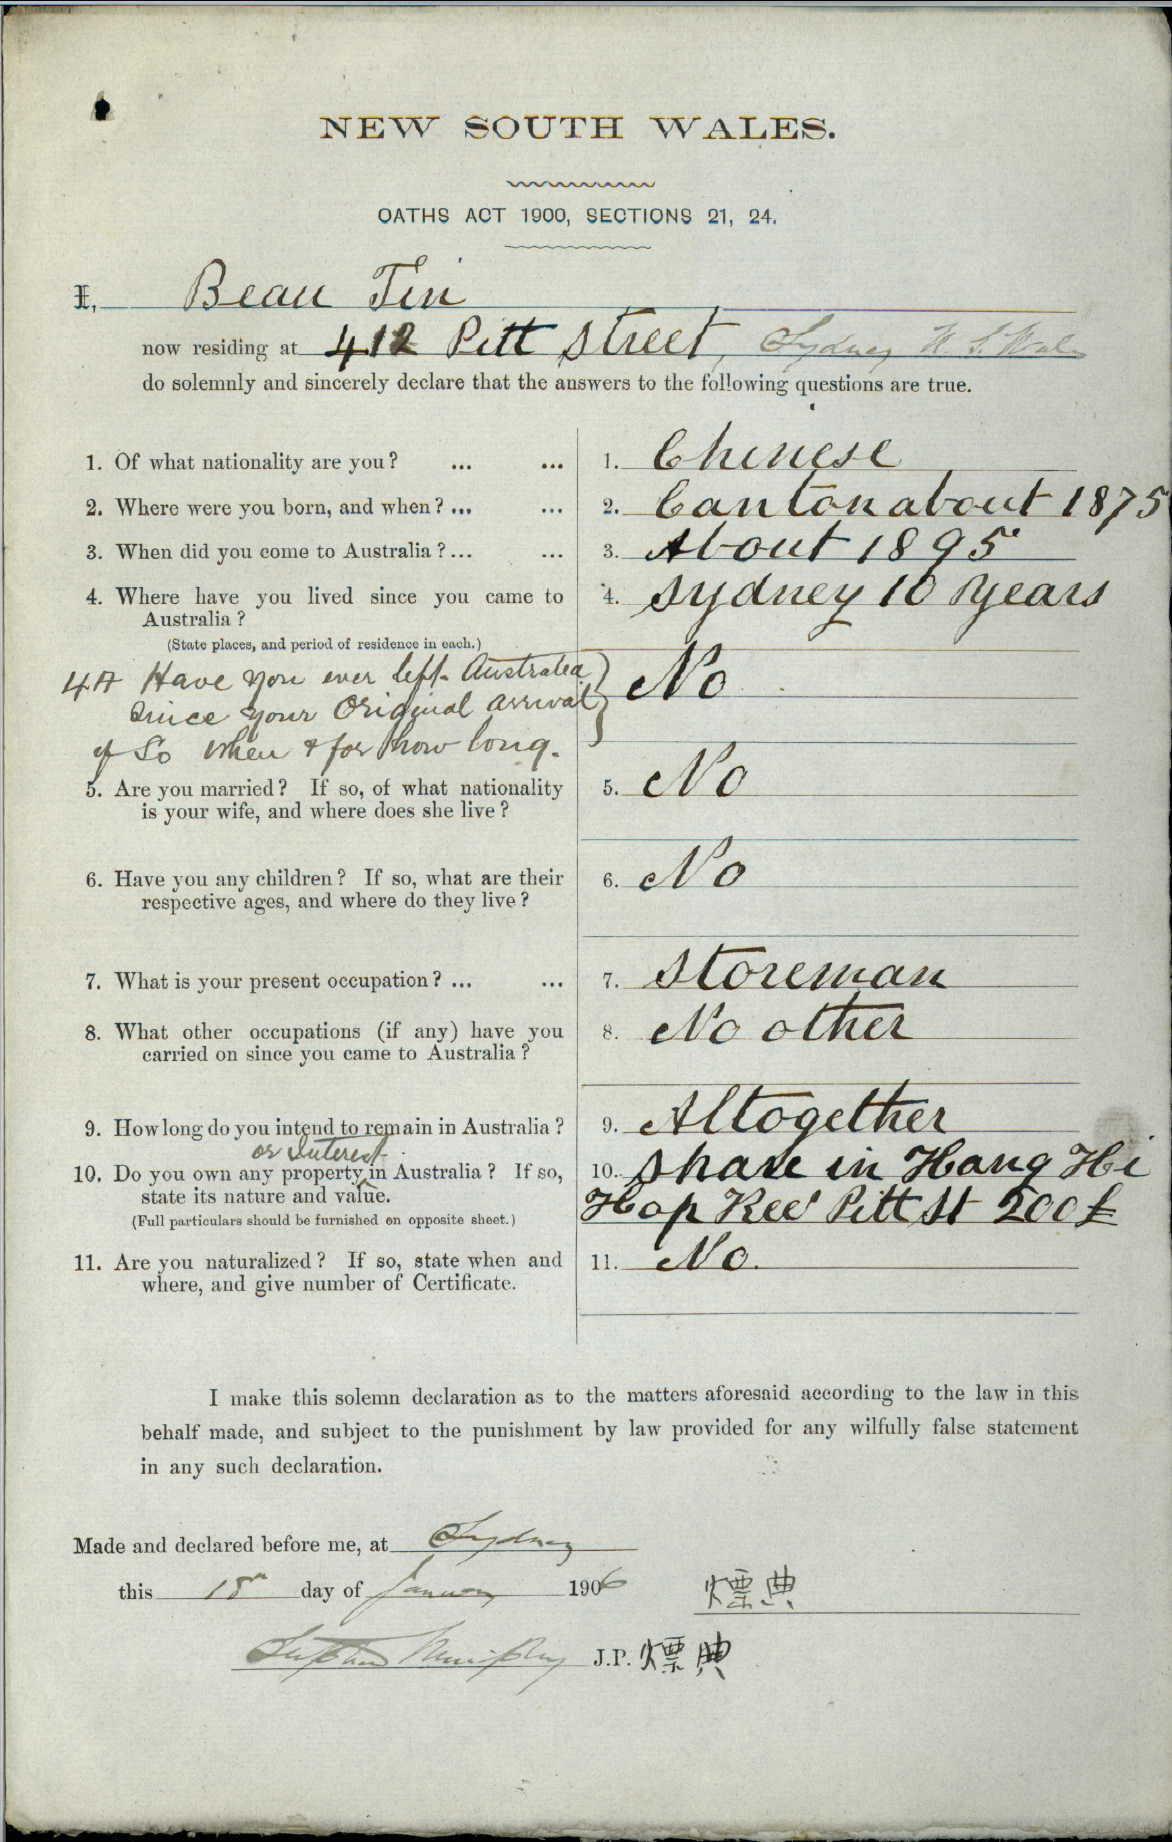 NEW SOUTH WALES.
OATHS ACT 1900, SECTIONS 21, 24.
I, Beau Tin
now residing at 412 Pitt Street, Sydney N. S. Wales
do solemnly and sincerely declare that the answers to the following questions are true.
1. Of what nationality are you? ... ... 1. Chinese
2. Where were you born, and when? ... ... 2. Canton about 1875
3. When did you come to Australia? ... ... 3. About 1895
4. Where have you lived since you came to 4. Sydney 10 Years
Australia?
(State places, and period of residence in each.)
4A Have you ever left Australia No
since your Original arrival
if So when & for how long.
5. Are you married? If so, of what nationality 5. No
is your wife, and where does she live?
6. Have you any children? If so, what are their 6. No
respective ages, and where do they live?
7. What is your present occupation? ... ... 7. Storeman
8. What other occupations (if any) have you 8. No other
carried on since you came to Australia?
9. How long do you intend to remain in Australia? 9. Altogether
or Interest
10. Do you own any property in Australia? If so, 10. Share in Hang Hi
state its nature and value. Hop Kee Pitt St 200£
(Full particulars should be furnished on opposite sheet.)
11. Are you naturalized? If so, state when and 11. No.
where, and give number of Certificate.
I make this solemn declaration as to the matters aforesaid according to the law in this
behalf made, and subject to the punishment by law provided for any wilfully false statement
in any such declaration.
Made and declared before me, at Sydney
this 18th day of January 1906 熛典
Stephen Murphy J.P. 熛典